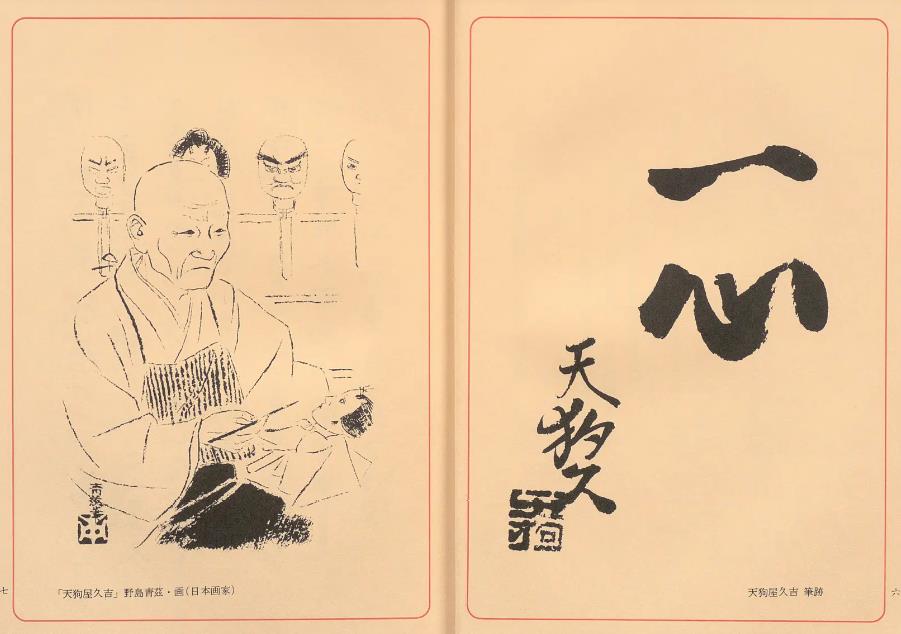 一心
天狗久
天狗屋久吉 筆跡
六
「天狗屋久吉」野島青茲・画(日本画家)
七